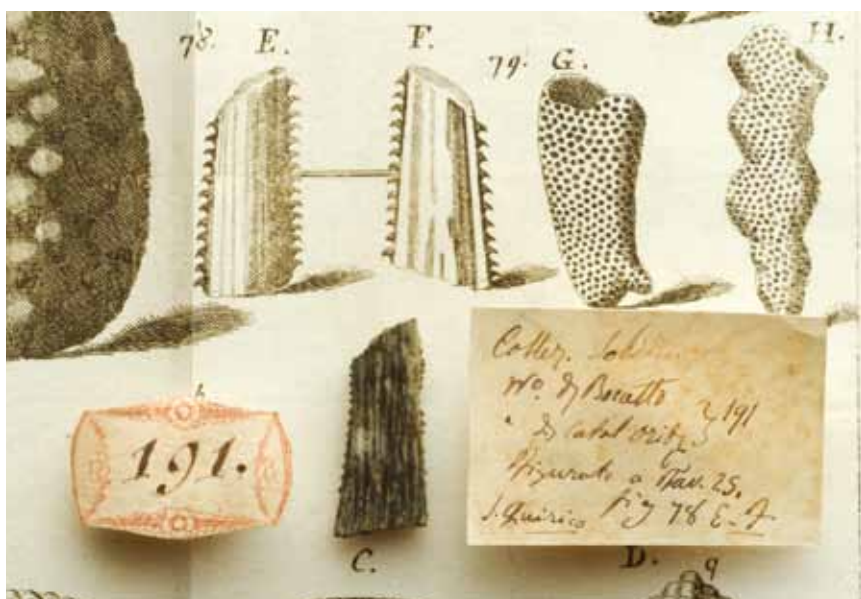 78. E. F. 79. G. H.
191.
Collez. Soldani
No. di Baratto } 191
" di Catal. orit.
Figurato a Tav. 25.
S. Quirico fig 78 E. F
C. D. q